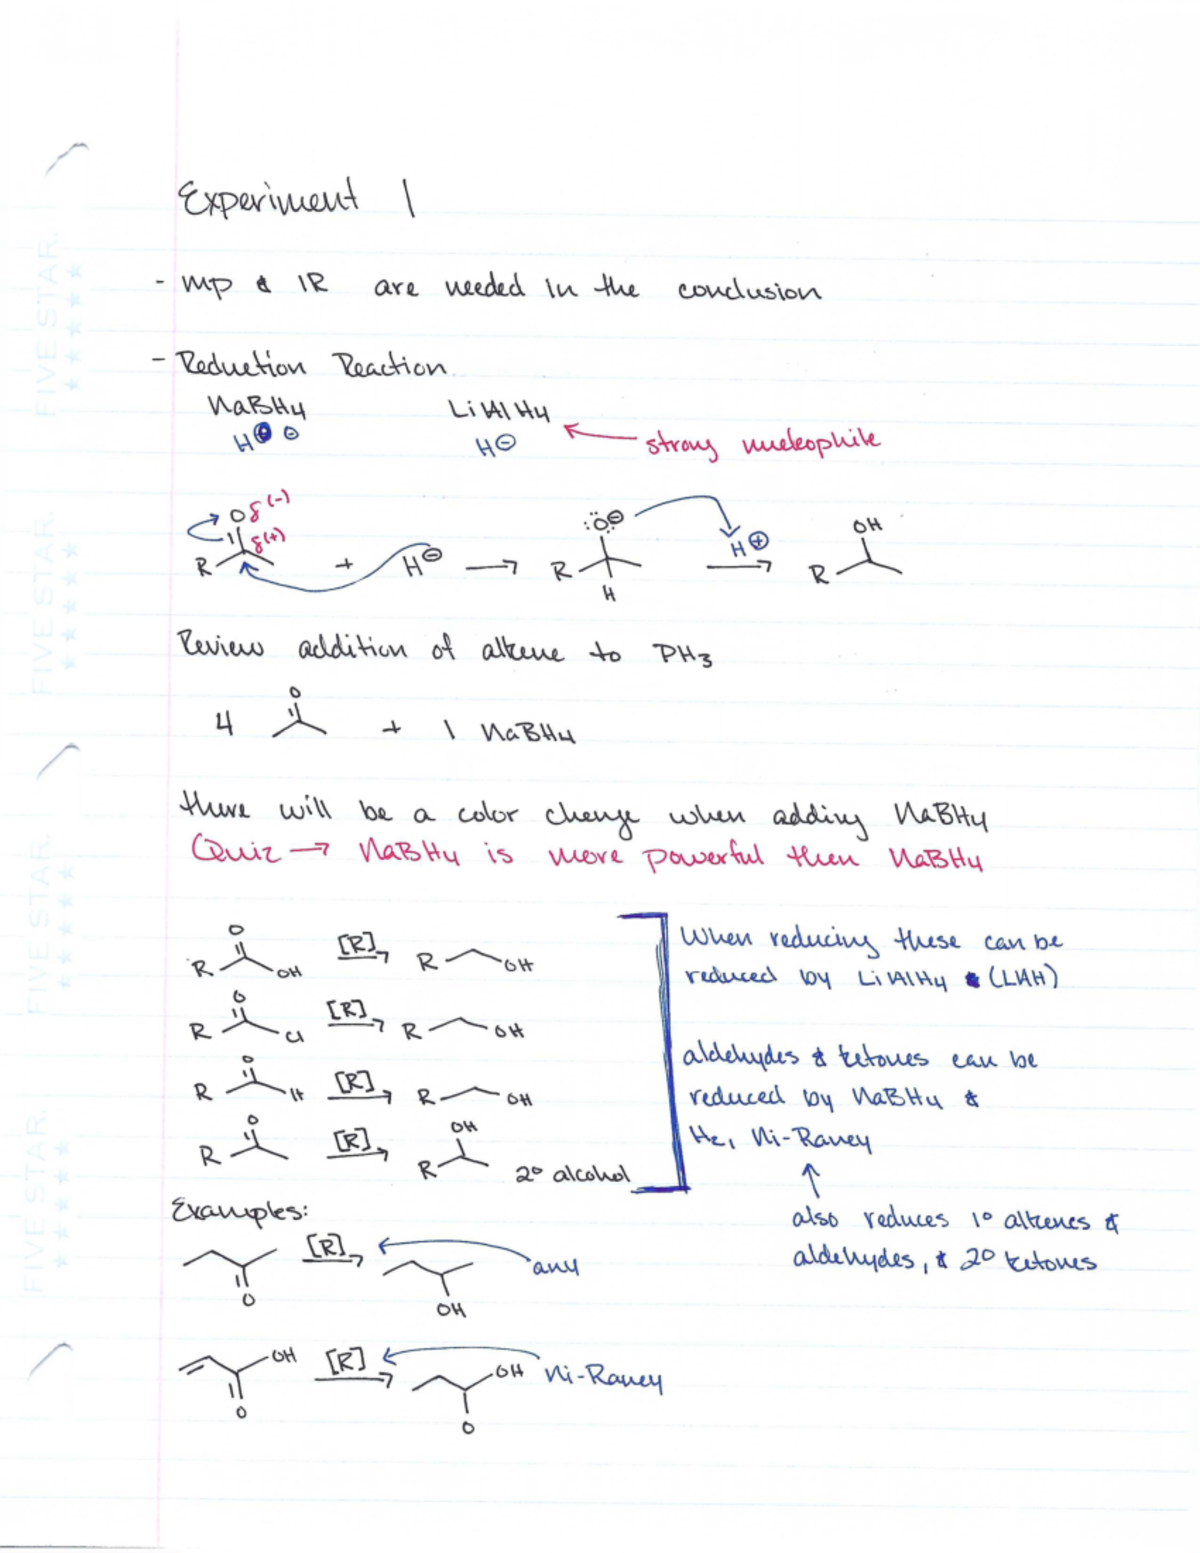 Experiment 1
- mp & IR are needed in the conclusion
- Reduction Reaction
NaBH4 LiAlH4
H⊕ ⊖ H⊖ strong nucleophile
O δ(-)
δ(+)
R + H⊖ → R :Ö:⊖ H H⊕ → R OH
Review addition of alkene to PH3
4 O + 1 NaBH4
there will be a color change when adding NaBH4
Quiz → NaBH4 is more powerful then NaBH4
R O OH [R] → R OH
R O Cl [R] → R OH
R O H [R] → R OH
R O [R] → R OH 2° alcohol
When reducing these can be
reduced by LiAlH4 (LAH)
aldehydes & ketones can be
reduced by NaBH4 &
H2, Ni-Raney
↑
also reduces 1° alkenes &
aldehydes, & 2° ketones
Examples:
O [R] → OH any
OH O [R] → OH O Ni-Raney
FIVE STAR.
FIVE STAR.
FIVE STAR.
FIVE STAR.